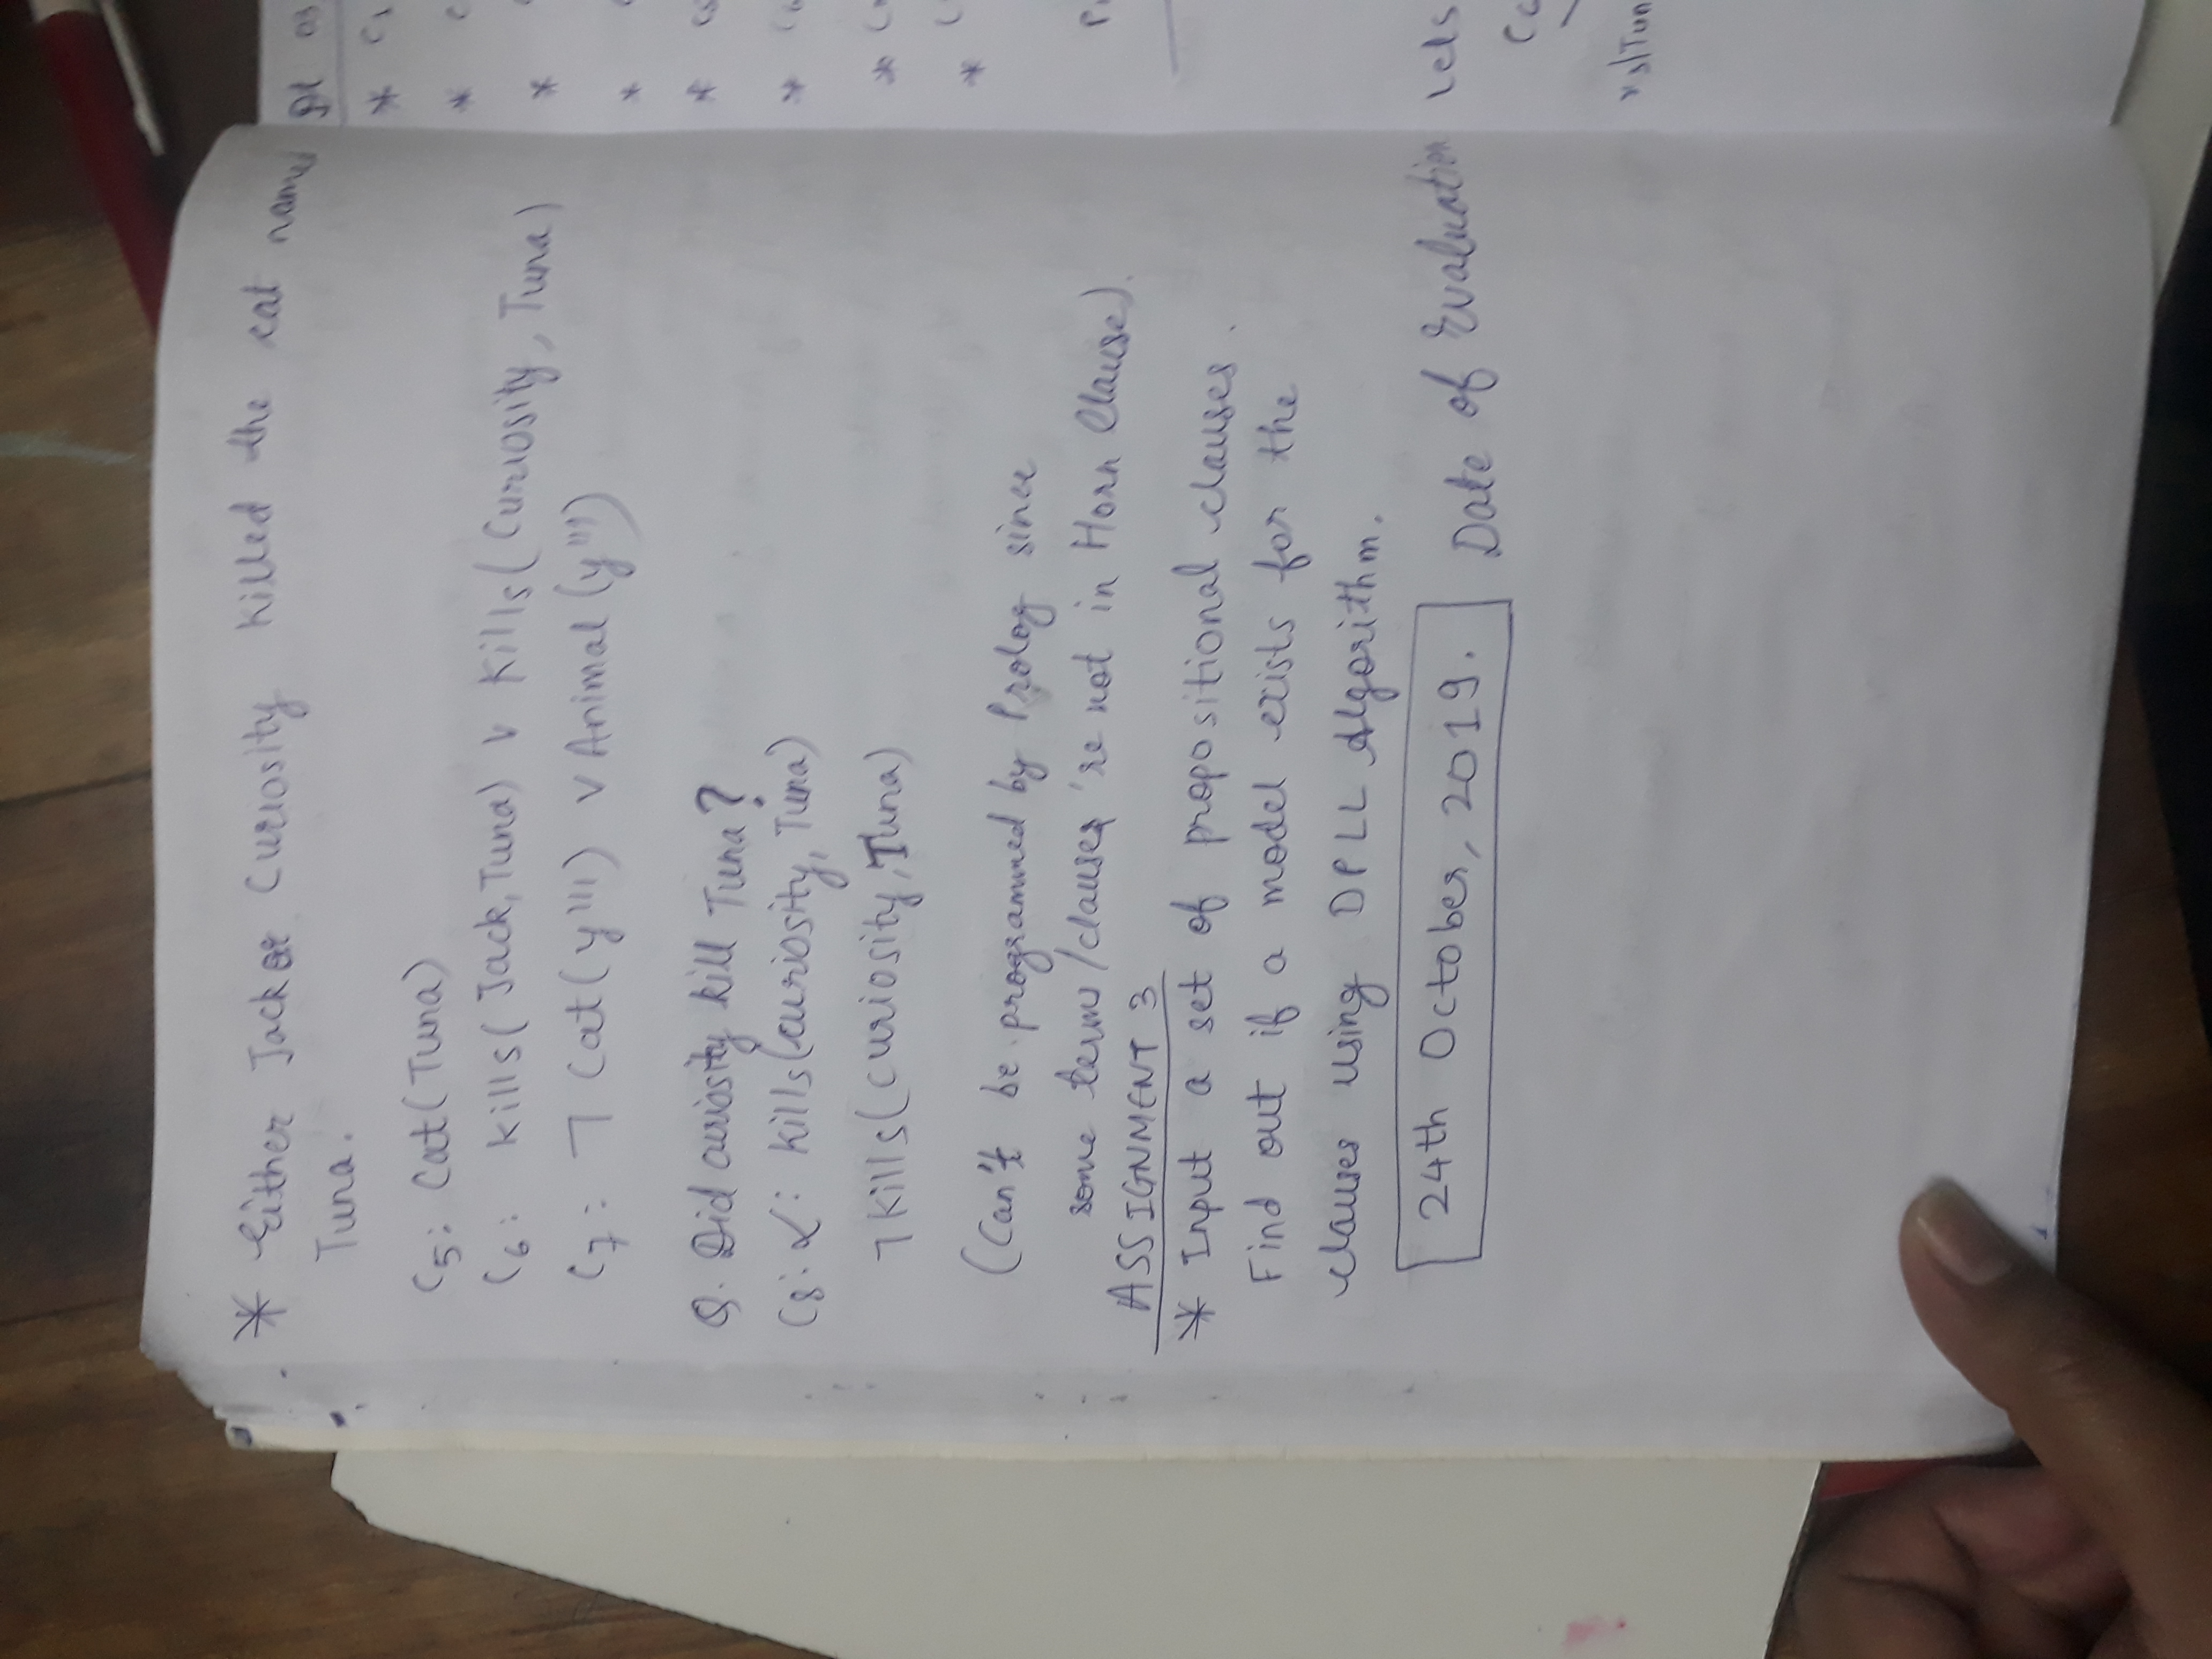 * Either Jack or Curiosity killed the cat name
Tuna.
C5: Cat(Tuna)
C6: Kills(Jack, Tuna) ∨ Kills(Curiosity, Tuna)
C7: ¬ Cat(y''') ∨ Animal(y''')
Q. Did curiosity kill Tuna?
C8: α: kills(curiosity, Tuna)
¬ kills(curiosity, Tuna)
(Can't be programmed by Prolog since
some terms/clauses 're not in Horn Clause).
ASSIGNMENT 3
* Input a set of propositional clauses.
Find out if a model exists for the
clauses using DPLL Algorithm.
24th October, 2019. Date of Evaluation